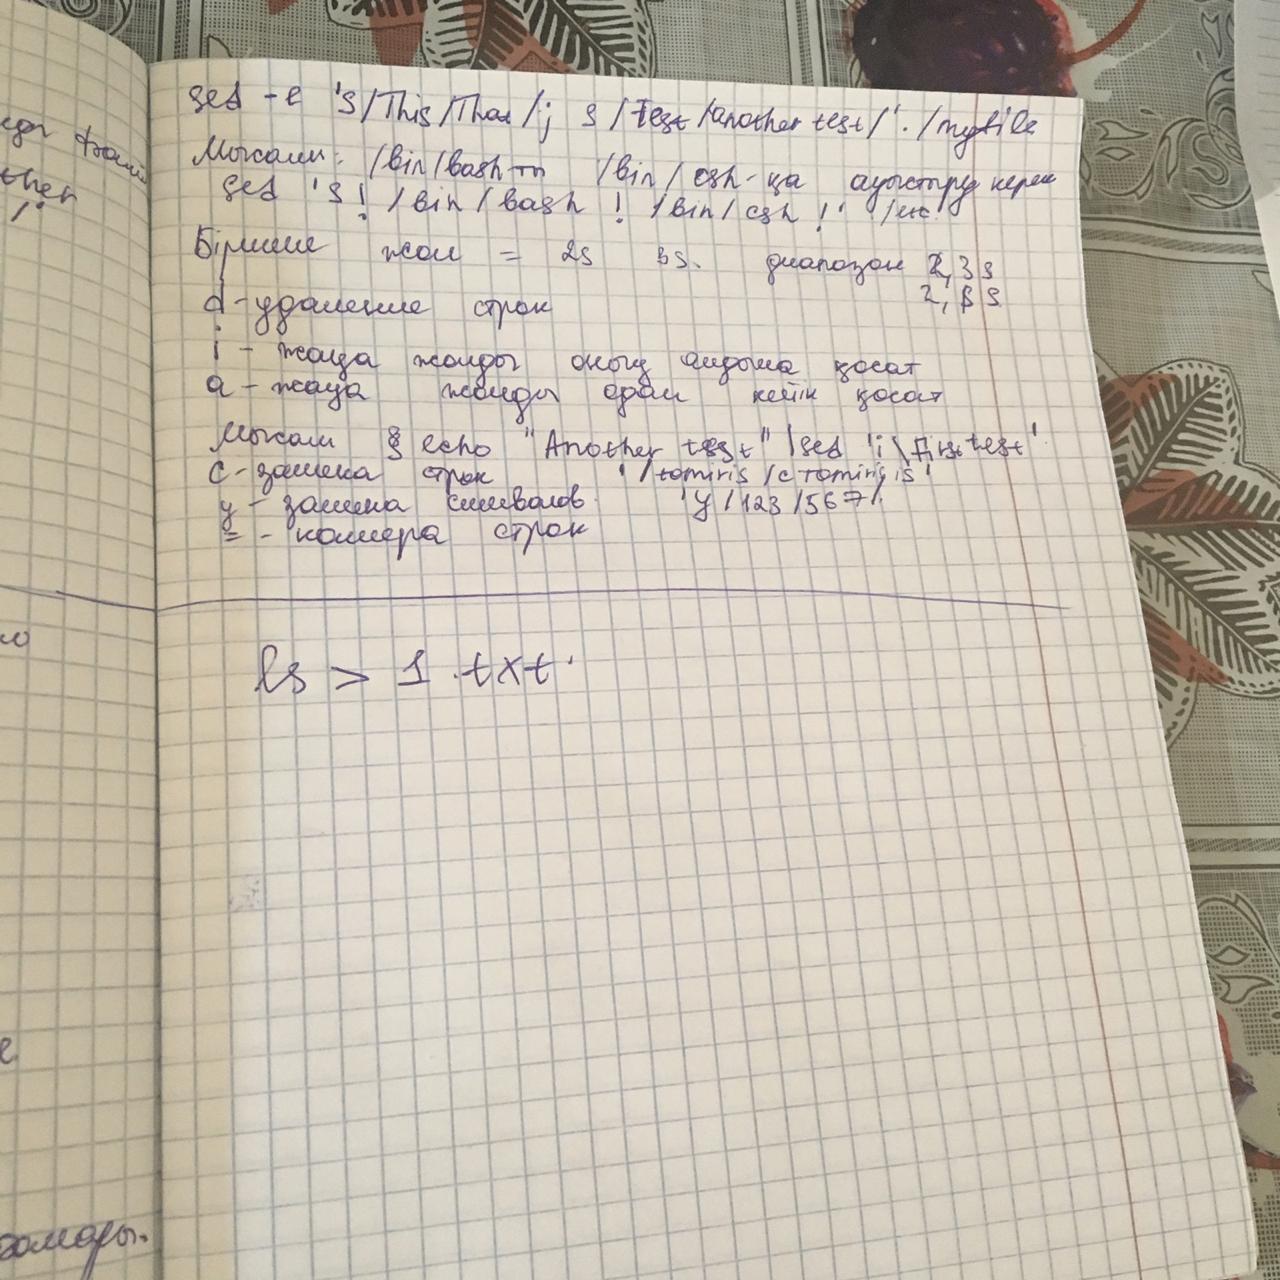 sed -e 's/This/That/; s/test/another test/' ./myfile
Мысалы: /bin/bash-ты /bin/csh-қа ауыстыру керек
sed 's!/bin/bash!/bin/csh!' /etc
Бірінше жол = 2s 3s. диапазон 2,3s
2, $ s
d - удаление строк
i - жаңа жолды оның алдына қосат
a - жаңа жолды одан кейін қосат
Мысалы $ echo "Another test" | sed 'i\First test'
c - замена строк '/tomiris/c Tomiris is'
y - замена символов 'y/123/567/'
= - номера строк
ls > 1.txt
then